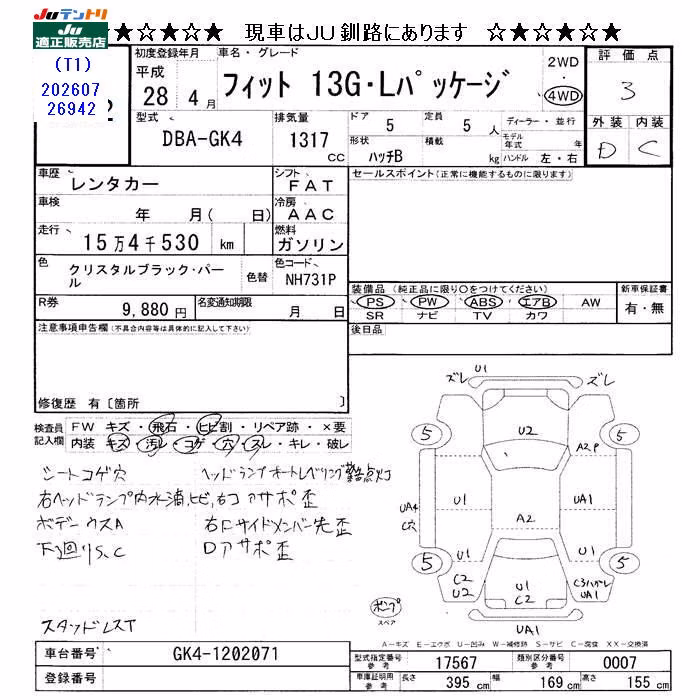 Juテントリ
JU
適正販売店
★☆★☆★☆ 現車はＪＵ釧路にあります ☆★☆★☆★
(T1)
202607
26942
初度登録年月
平成
28 4 月
車名・グレード
フィット 13G・Lパッケージ
2WD
・
4WD
評価点
3
外装 内装
D C
型式
DBA-GK4
排気量
1317
CC
ドア 5
定員 5 人
形状 ハッチB
積載 kg
ディーラー・並行
モデル年式 年
ハンドル 左・右
車歴
レンタカー
シフト
FAT
車検
年 月( 日)
冷房
AAC
走行
15万4千530 km
燃料
ガソリン
色
クリスタルブラック・パール
色替
色コード
NH731P
R券
9,880 円
名変通知期限
月 日
セールスポイント(正常に機能するものに限ります)
装備品 (純正品に限り○をつけてください)
PS PW ABS エアB AW
SR ナビ TV カワ
新車保証書
有・無
後日品
注意事項申告欄(不具合内容等は具体的に記入して下さい)
修復歴 有〔箇所 〕
検査員記入欄
FW キズ・飛石・ヒビ割・リペア跡・×要
内装 キズ・汚レ・コゲ・穴・スレ・キレ・破レ
シートコゲ穴
ヘッドランプオートレベリング警告点灯
右ヘッドランプ内水滴,ヒビ,右コアサポ歪
ボデーウスA
右Fサイドメンバー先歪
下回りS,C
Dアサポ歪
スタッドレスT
ズレ U1 ズレ
5 U2 5
A2P
UA4
C穴
U1 A2 UA1
U1 U1
5 5
C2
U2
U1
C2
C3ハガレ
UA1
ポンプ
スペア
UA1
A－キズ E－エクボ U－凹み W－補修跡 S－サビ C－腐食 XX－交換済
車台番号
GK4-1202071
登録番号
型式指定番号
参考
17567
類別区分番号
参考
0007
車庫証明用
参考
長さ 395 cm
幅 169 cm
高さ 155 cm